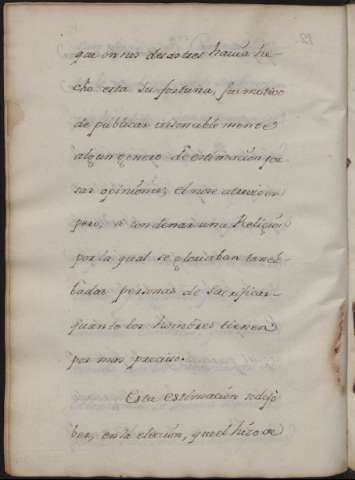 que en sus desastres havia he-
cho esta su fortuna, fue motivo
de publicar insensiblemente
algun genero de estimación por
sus opiniones, el no se atrevio em
pero, a condenar una Religión
por la qual se gloriaban tan ele-
badas personas de sacrificar
quanto los hombres tienen
por mas precioso.
Esta estimación se dejó
ber, en la elección, que el hizo de